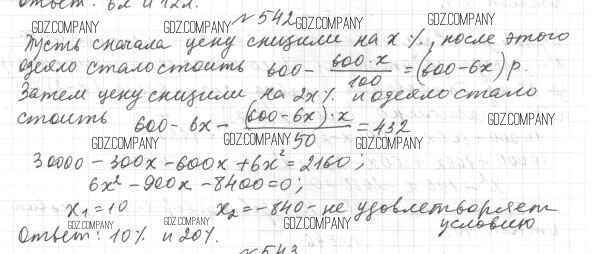 Ответ: 6л и 12л.
№ 542
GDZ.COMPANY GDZ.COMPANY GDZ.COMPANY
Пусть сначала цену снизили на x %, после этого
одеяло стало стоить 600 - 600·x/100 = (600-6x) р.
Затем цену снизили на 2x% и одеяло стало
стоить 600 - 6x - (600-6x)·x/50 = 432
GDZ.COMPANY GDZ.COMPANY GDZ.COMPANY
30000 - 300x - 600x + 6x² = 2160;
6x² - 900x - 8400 = 0;
x₁ = 10 x₂ = -840 - не удовлетворяет
условию
GDZ.COMPANY GDZ.COMPANY GDZ.COMPANY GDZ.COMPANY
Ответ: 10% и 20%.
№ 543